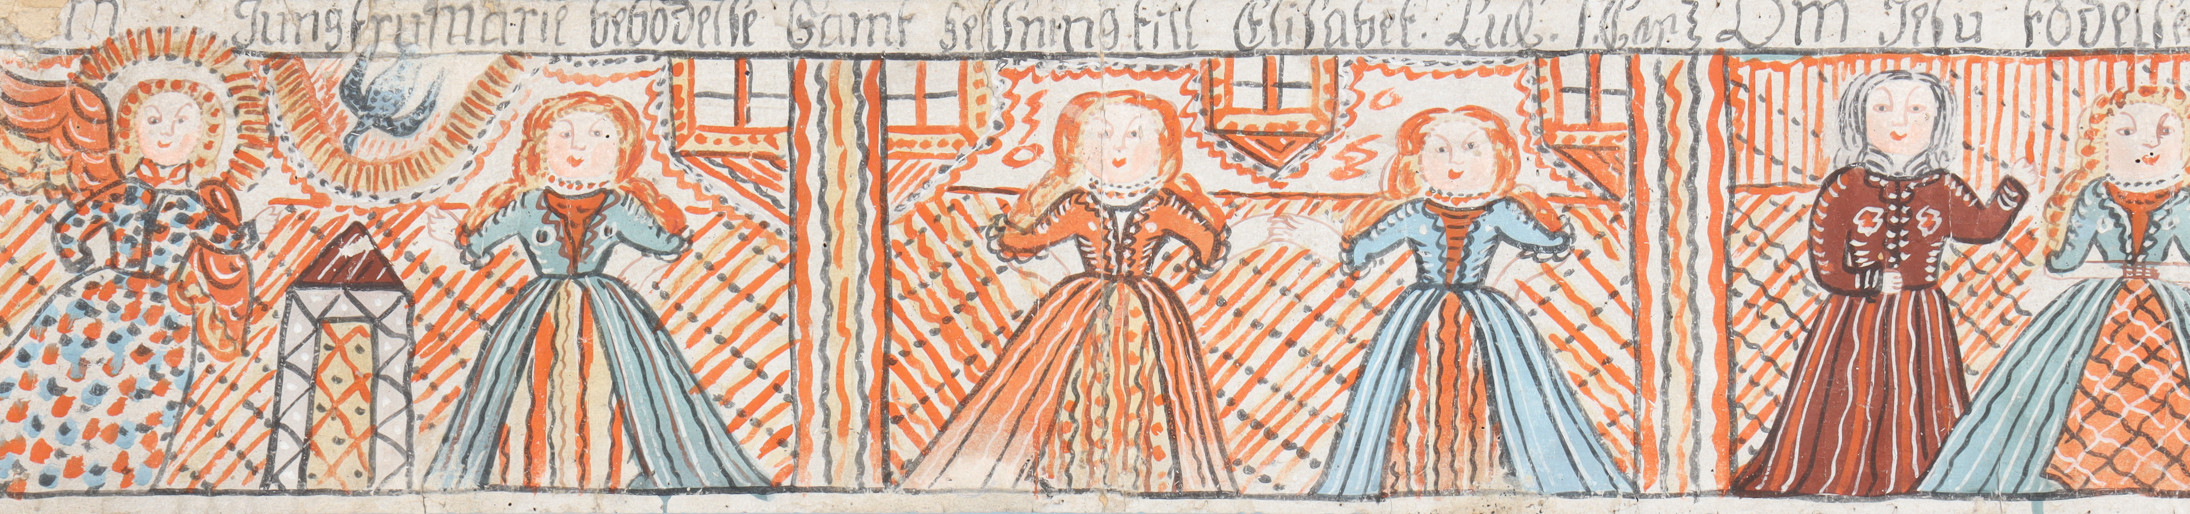 Jungfru Marie bebodelse Samt helsning till Elisabet. Luc. 1. Cap. Om Jesu födelse